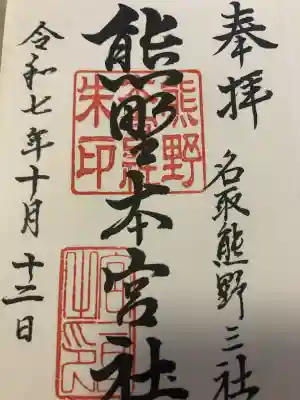 奉拝
名取熊野三社
熊野本宮社
熊野
朱印
令和七年十月十二日